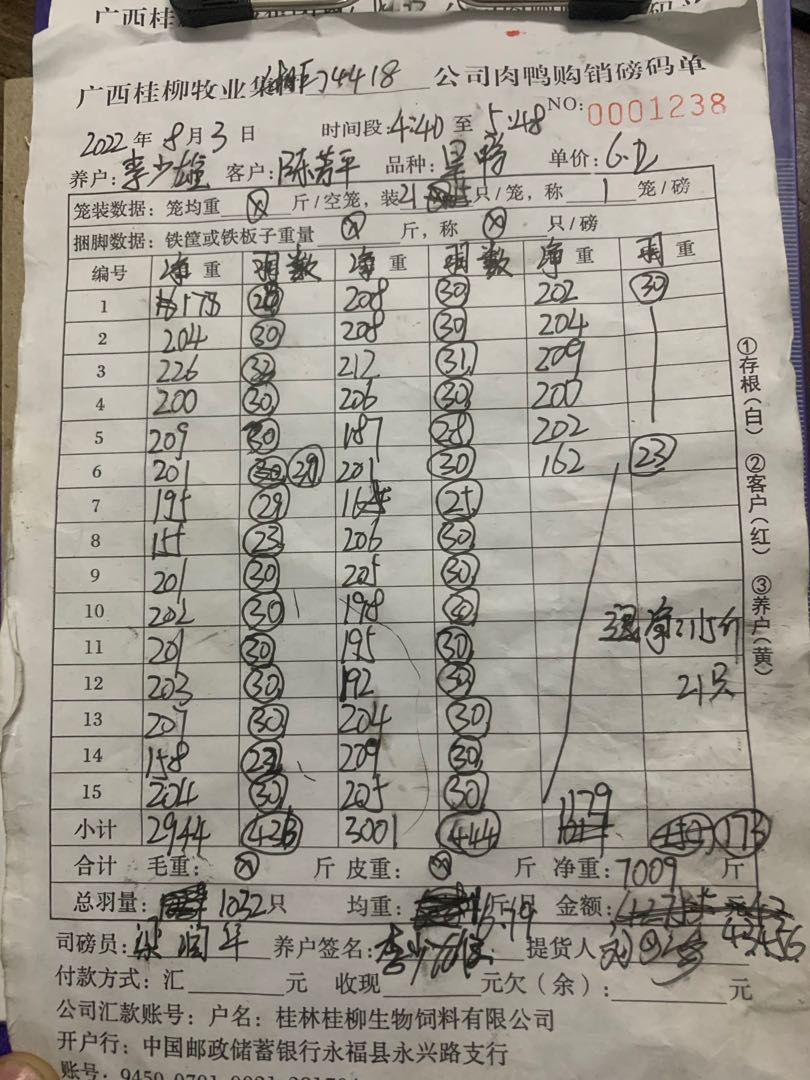 广西桂柳牧业集 4418 公司肉鸭购销磅码单
NO: 0001238
2022年8月3日 时间段:4:40至5:48
养户:李少雄 客户:陈芳平 品种:黑鸭 单价:6.2
笼装数据:笼均重 ⊗ 斤/空笼,装21 只/笼,称 1 笼/磅
捆脚数据:铁筐或铁板子重量 ⊗ 斤,称 ⊗ 只/磅
编号 净重 羽数 净重 羽数 净重 羽重
1 178 208 30 202 30
2 204 30 208 30 204
3 226 32 212 31 209
4 200 30 206 30 200
5 209 30 187 28 202
6 201 29 201 30 162 23
7 195 29 165 25
8 155 23 206 30
9 201 30 205 30
10 202 30 198 30
11 201 30 195 30
12 203 30 192 30
13 207 30 204 30
14 158 23 209 30
15 204 30 205 30
净115斤
21只
小计 2944 436 3001 444 1179 173
合计 毛重: ⊗ 斤 皮重: ⊗ 斤 净重:7009斤
总羽量: 1032只 均重: 6.79 斤/只 金额: 元
43456
司磅员:梁润年 养户签名: 提货人
付款方式:汇 元 收现 元欠(余): 元
公司汇款账号:户名:桂林桂柳生物饲料有限公司
开户行:中国邮政储蓄银行永福县永兴路支行
账号:9459 0701 0021
①存根(白) ②客户(红) ③养户(黄)